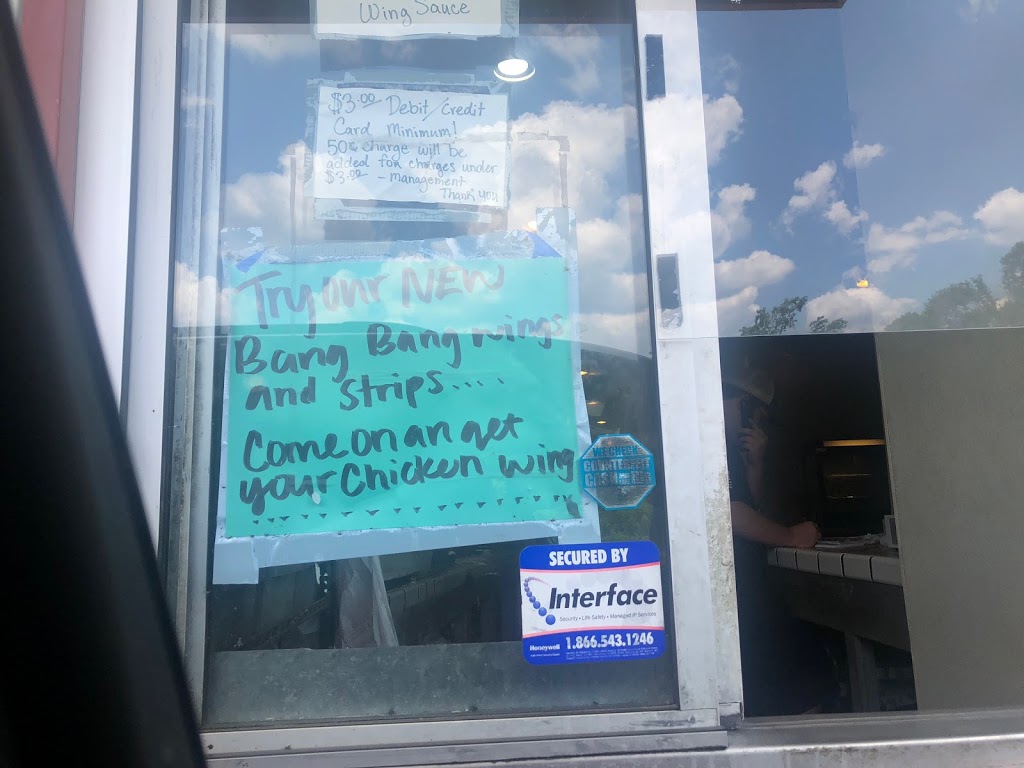 Wing Sauce
$3.00 Debit/Credit
Card Minimum!
50¢ charge will be
added for charges under
$3.00 - management
Thank you
Try our NEW
Bang Bang wings
and strips....
Come on an get
your Chicken wing
WE CHECK
COUNTERFEIT
SECURED BY
Interface
Security • Life Safety • Managed IP Services
Honeywell 1.866.543.1246